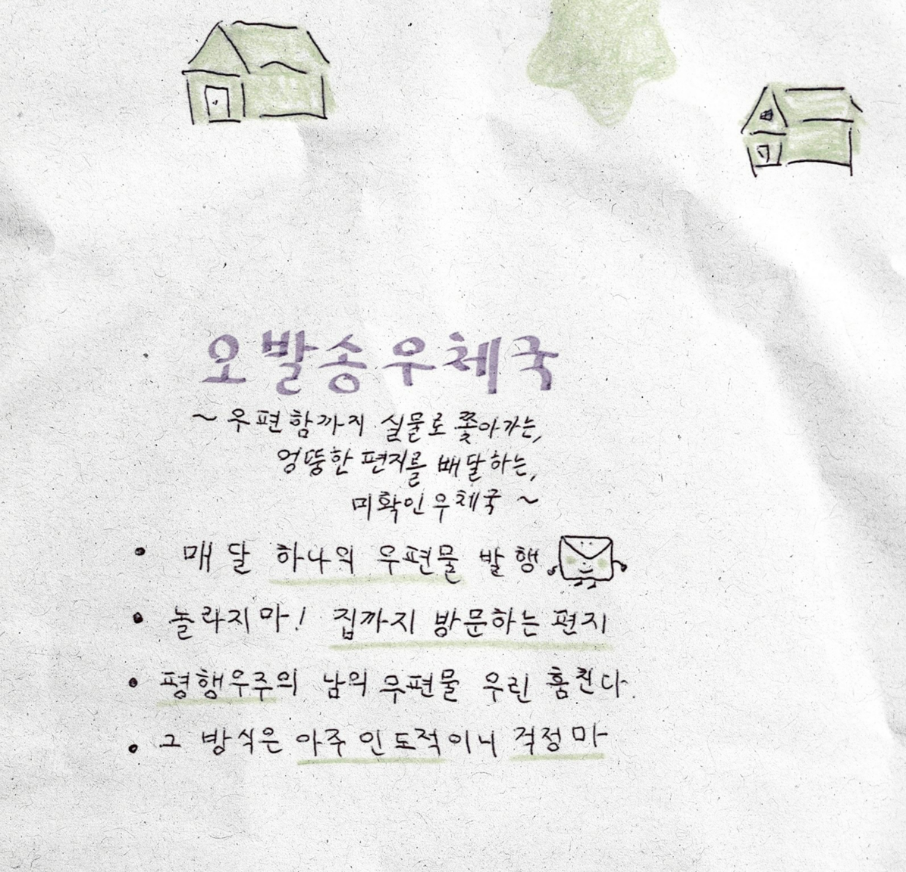 오발송우체국
~ 우편함까지 실물로 쫓아가는,
엉뚱한 편지를 배달하는,
미확인우체국 ~
• 매달 하나의 우편물 발행
• 놀라지마! 집까지 방문하는 편지
• 평행우주의 남의 우편물 우린 훔친다.
• 그 방식은 아주 인도적이니 걱정마